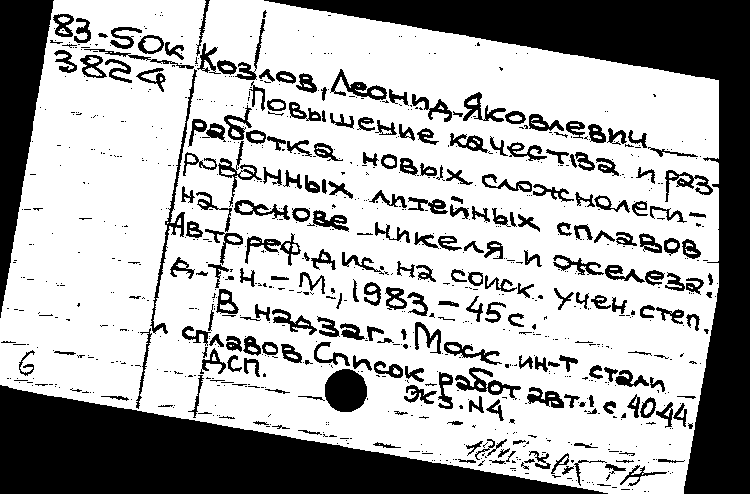 83-50к
382а
Козлов, Леонид Яковлевич
Повышение качества и раз-
работка новых сложнолеги-
рованных литейных сплавов
на основе никеля и железа:
Автореф. дис. на соиск. учен. степ.
д.т.н. - М., 1983. - 45 с.
В надзаг.: Моск. ин-т стали
и сплавов. Список работ авт.: с. 40-44.
ДСП.
экз. N4.
6